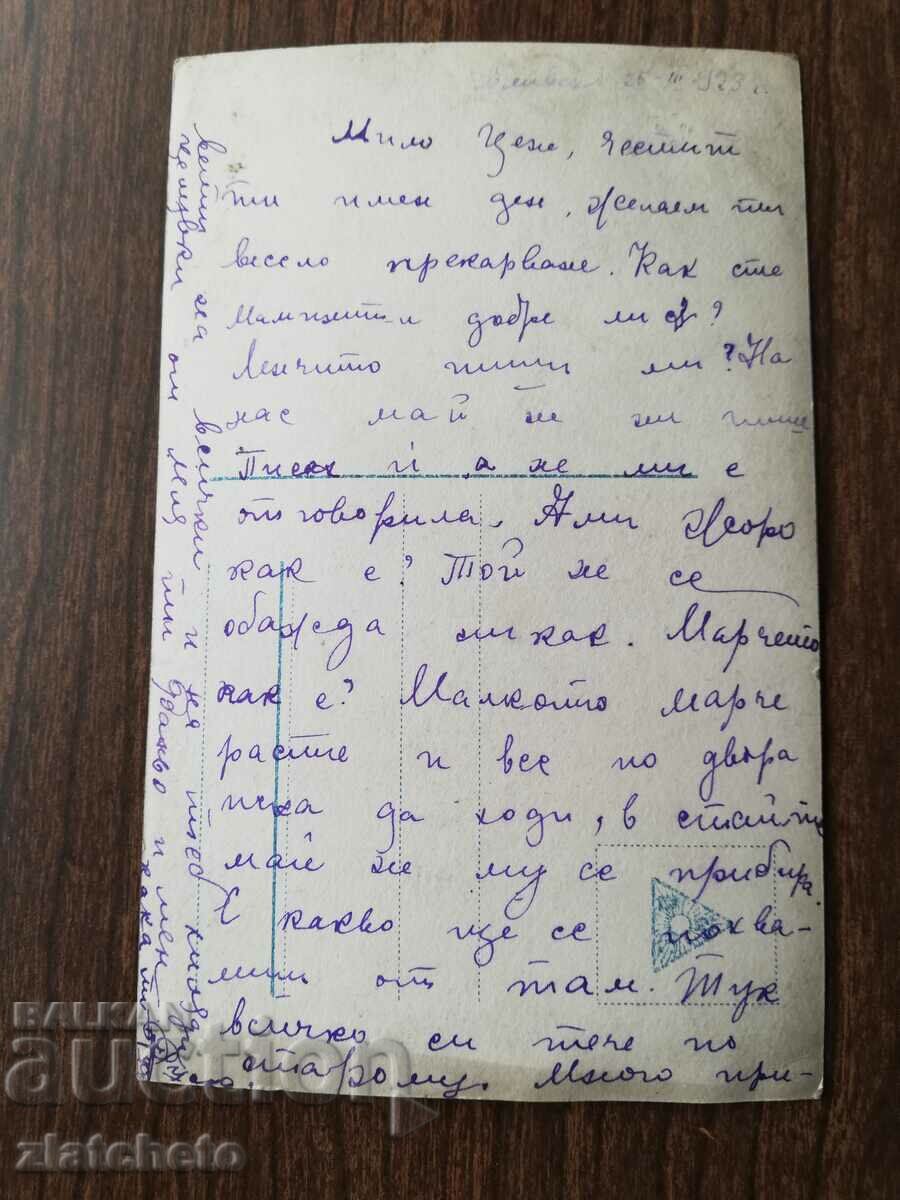 25-III-923 г.
Мило Цене, честит
ти имен ден, желаем ти
весело прекарване. Как сте
добре ли
Ленчито пиши ми? На
нас май не ни пише
Писах ѝ а не ми е
отговорила. Ами Жоро
как е? Той не се
обажда никак. Марчето
как е? Малкото марче
расте и все по двора
иска да ходи, в
май не му се прибира.
Е какво ще се похва-
лиш от там. Тук
всичко си тече по
старому. Много при-
вети на всички и на теб
целувки от мен
BALKAN
auction
zlatcheto